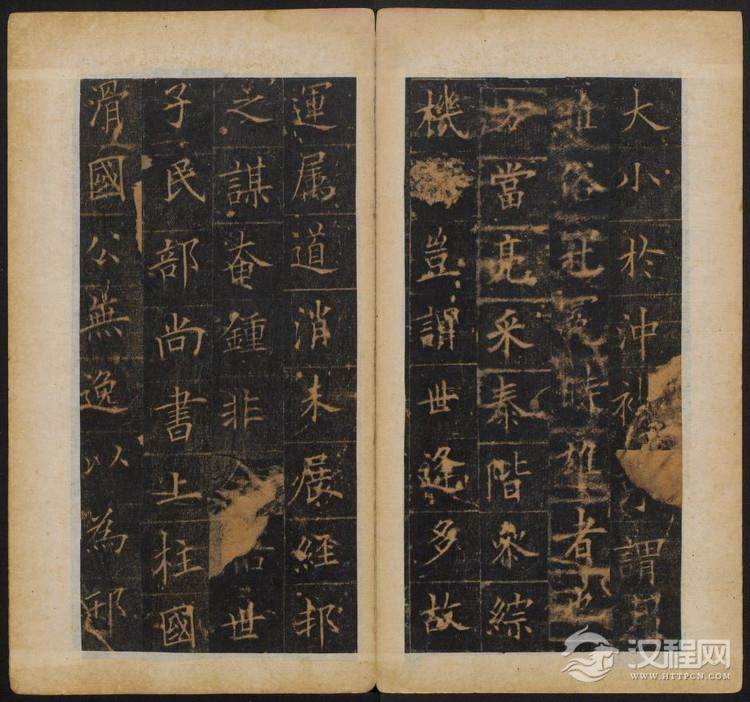 大小於沖謂
雅俗冠冕時雄者也
方當亮采泰階參綜
機豈謂世逢多故
運属道消未展經邦
之謀奄鍾非世
子民部尚書上柱國
滑國公無逸以為邢
汉程网
WWW.HTTPCN.COM